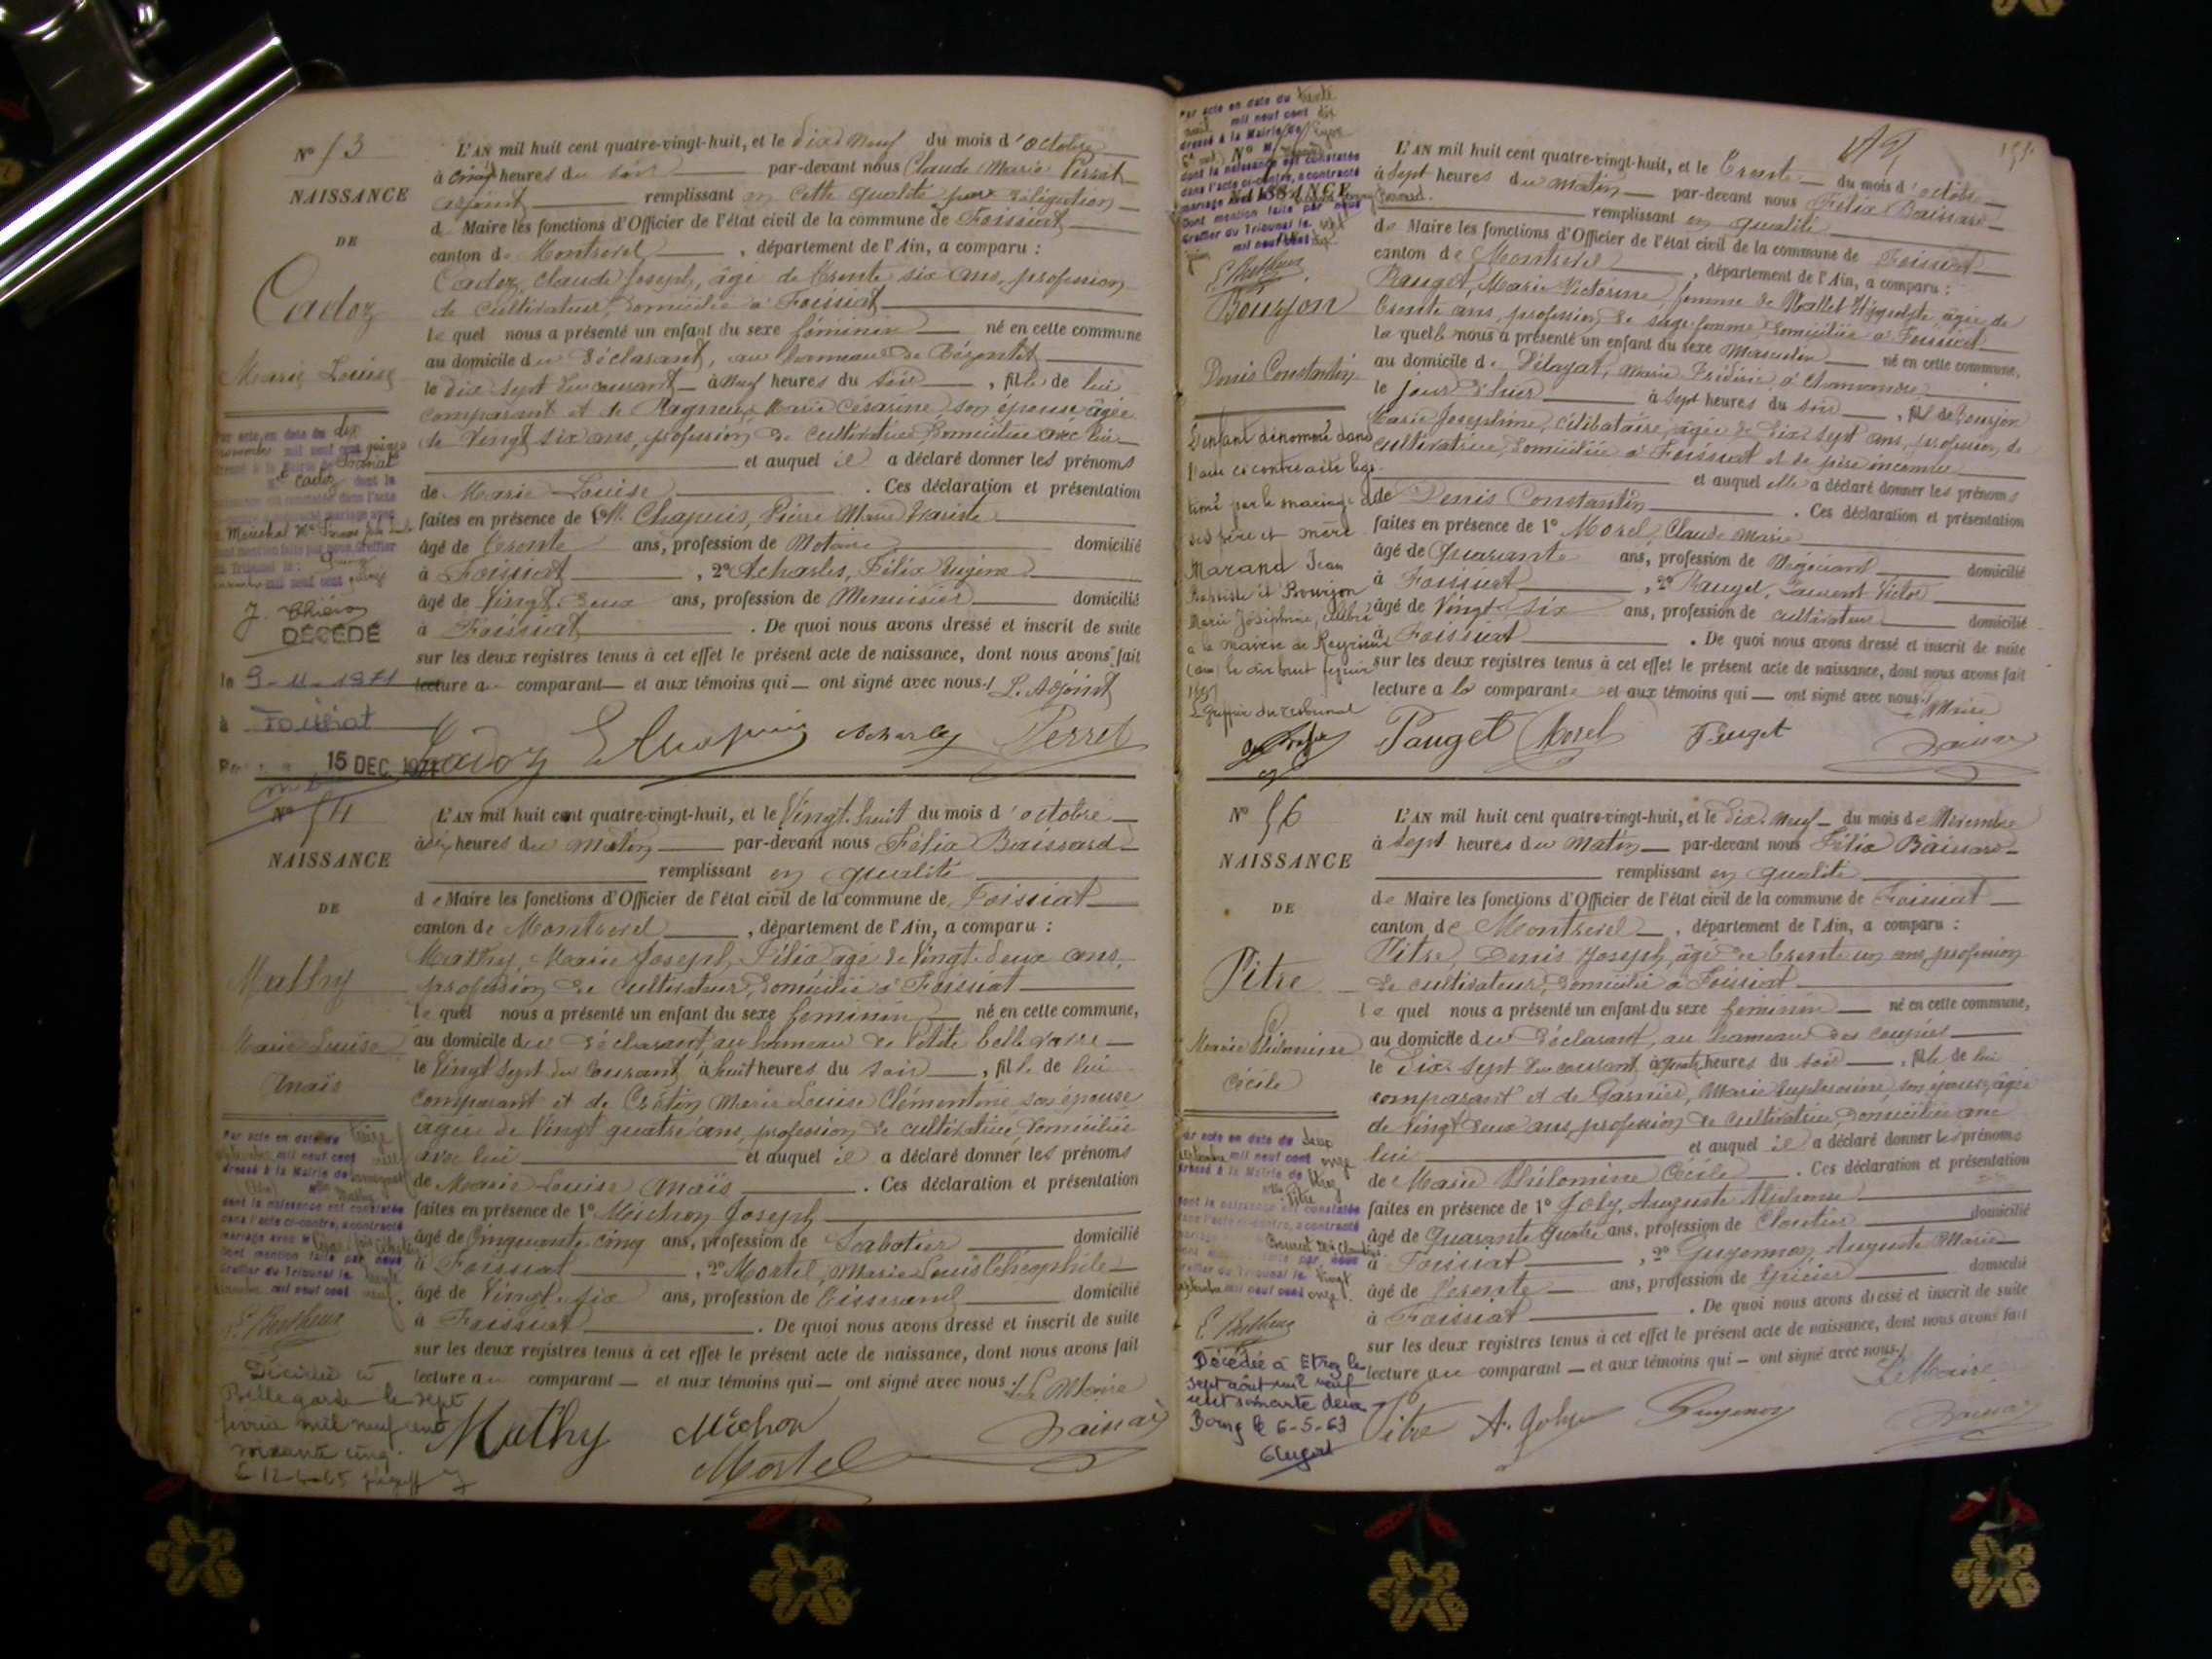 N° 53
NAISSANCE
DE
Cadoz
Marie Louise
L'AN mil huit cent quatre-vingt-huit, et le dix neuf du mois d'octobre
à cinq heures du soir par-devant nous Claude Marie Perret
adjoint remplissant en cette qualité par délégation
de Maire les fonctions d'Officier de l'état civil de la commune de Foissiat
canton de Montrevel, département de l'Ain, a comparu :
Cadoz, Claude Joseph, âgé de trente six ans, profession
de cultivateur, domicilié à Foissiat
lequel nous a présenté un enfant du sexe féminin né en cette commune
au domicile du déclarant, au hameau de
le dix sept du courant à neuf heures du soir, fille de lui
comparant et de Ragneux Marie Césarine, son épouse, âgée
de vingt six ans, profession de cultivatrice, domiciliée avec lui
et auquel il a déclaré donner les prénoms
de Marie Louise. Ces déclaration et présentation
faites en présence de 1° M. Chapuis, Pierre Marie
âgé de trente ans, profession de Notaire domicilié
à Foissiat, 2° Acharles, Félix Eugène
âgé de vingt deux ans, profession de Menuisier domicilié
à Foissiat. De quoi nous avons dressé et inscrit de suite
sur les deux registres tenus à cet effet le présent acte de naissance, dont nous avons fait
lecture au comparant et aux témoins qui ont signé avec nous. L'Adjoint
Cadoz Chapuis Acharles Perret
Par acte en date du dix
mil neuf cent
dressé à la Mairie de Foissiat
Cadoz dont la
naissance est constatée dans l'acte
Maréchal
Dont mention faite par nous, Greffier
du Tribunal le
mil neuf cent
DÉCÉDÉ
le 9-11-1971
à Foissiat
15 DEC. 1971
N° 54
NAISSANCE
DE
Mathy
Marie Louise
Anaïs
L'AN mil huit cent quatre-vingt-huit, et le vingt huit du mois d'octobre
à dix heures du matin par-devant nous Félix Baissard
remplissant en qualité
de Maire les fonctions d'Officier de l'état civil de la commune de Foissiat
canton de Montrevel, département de l'Ain, a comparu :
Mathy, Marie Joseph, Félix âgé de vingt deux ans,
profession de cultivateur, domicilié à Foissiat
lequel nous a présenté un enfant du sexe féminin né en cette commune,
au domicile du déclarant, au hameau de Petite belle vavre
le vingt sept du courant, à huit heures du soir, fille de lui
comparant et de Crétin Marie Louise Clémentine son épouse
âgée de vingt quatre ans, profession de cultivatrice, domiciliée
avec lui et auquel il a déclaré donner les prénoms
de Marie Louise Anaïs. Ces déclaration et présentation
faites en présence de 1° Michon Joseph
âgé de cinquante cinq ans, profession de Sabotier domicilié
à Foissiat, 2° Mortel, Marie Louis Théophile
âgé de vingt six ans, profession de Tisserand domicilié
à Foissiat. De quoi nous avons dressé et inscrit de suite
sur les deux registres tenus à cet effet le présent acte de naissance, dont nous avons fait
lecture au comparant et aux témoins qui ont signé avec nous. Le Maire
Mathy Michon Mortel Baissard
Par acte en date du treize
mil neuf cent neuf
dressé à la Mairie de
Mathy
dont la naissance est constatée
dans l'acte ci-contre, a contracté
mariage avec M
Dont mention faite par nous
Greffier du Tribunal le
mil neuf cent neuf.
Décédée à
Bellegarde le sept
février mil neuf cent
soixante cinq.
Par acte en date du trente
avril mil neuf cent dix
dressé à la Mairie de
N°
dont la naissance est constatée
dans l'acte ci-contre, a contracté
mariage avec
Dont mention faite par nous
Greffier du Tribunal le
mil neuf cent dix
NAISSANCE
Bourjon
Denis Constantin
L'enfant dénommé dans
l'acte ci contre a été légi-
timé par le mariage de
ses père et mère
Marand Jean
Baptiste et Bourjon
Marie Joséphine, célébré
à la mairie de Reyrieux
(Ain) le dix huit
Le Greffier du Tribunal
L'AN mil huit cent quatre-vingt-huit, et le trente du mois d'octobre
à sept heures du matin par-devant nous Félix Baissard
remplissant en qualité
de Maire les fonctions d'Officier de l'état civil de la commune de Foissiat
canton de Montrevel, département de l'Ain, a comparu :
Pauget, Marie Victorine, femme de Mallet Hippolyte âgée de
trente ans, profession de sage femme, domiciliée à Foissiat
laquelle nous a présenté un enfant du sexe masculin né en cette commune,
au domicile de Délayat, Marie Frédéric, à
le jour d'hier à sept heures du soir, fils de Bourjon
Marie Joséphine, célibataire, âgée de dix sept ans, profession de
cultivatrice, domiciliée à Foissiat et de père inconnu
et auquel elle a déclaré donner les prénoms
de Denis Constantin. Ces déclaration et présentation
faites en présence de 1° Morel, Claude Marie
âgé de quarante ans, profession de Négociant domicilié
à Foissiat, 2° Pauget, Laurent Victor
âgé de vingt six ans, profession de cultivateur domicilié
à Foissiat. De quoi nous avons dressé et inscrit de suite
sur les deux registres tenus à cet effet le présent acte de naissance, dont nous avons fait
lecture à la comparante et aux témoins qui ont signé avec nous. Le Maire
Pauget Morel Pauget Baissard
N° 56
NAISSANCE
DE
Pitre
Marie Philomine
Cécile
L'AN mil huit cent quatre-vingt-huit, et le dix neuf du mois de Novembre
à sept heures du matin par-devant nous Félix Baissard
remplissant en qualité
de Maire les fonctions d'Officier de l'état civil de la commune de Foissiat
canton de Montrevel, département de l'Ain, a comparu :
Pitre, Denis Joseph, âgé de trente un ans, profession
de cultivateur, domicilié à Foissiat
lequel nous a présenté un enfant du sexe féminin né en cette commune,
au domicile du déclarant, au hameau des coupés
le dix sept du courant à quatre heures du soir, fille de lui
comparant et de Garnier, Marie Euphrosine, son épouse, âgée
de vingt deux ans, profession de cultivatrice, domiciliée avec
lui et auquel il a déclaré donner les prénoms
de Marie Philomine Cécile. Ces déclaration et présentation
faites en présence de 1° Joly, Auguste Alphonse
âgé de quarante quatre ans, profession de Cloutier domicilié
à Foissiat, 2° Guyennon, Auguste Marie
âgé de trente ans, profession de épicier domicilié
à Foissiat. De quoi nous avons dressé et inscrit de suite
sur les deux registres tenus à cet effet le présent acte de naissance, dont nous avons fait
lecture au comparant et aux témoins qui ont signé avec nous. Le Maire
Pitre A. Joly Guyennon Baissard
Par acte en date du deux
septembre mil neuf cent onze
dressé à la Mairie de Etrez
Mlle Pitre
dont la naissance est constatée
dans l'acte ci-contre, a contracté
mariage
Dont mention faite par nous
Greffier du Tribunal le vingt
septembre mil neuf cent onze.
Décédée à Etrez le
sept août mil neuf
cent soixante deux
Bourg le 6-5-63